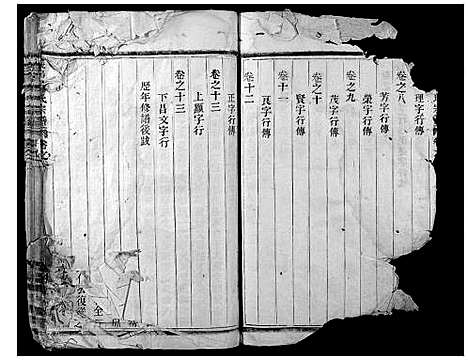 理字行傳
卷之八
芳字行傳
榮字行傳
卷之九
茂字行傳
卷之十
賢字行傳
卷十一
良字行傳
卷十二
正字行傳
卷之十三
上顯字行
卷之十三
下昌文字行
歷年修譜後跋